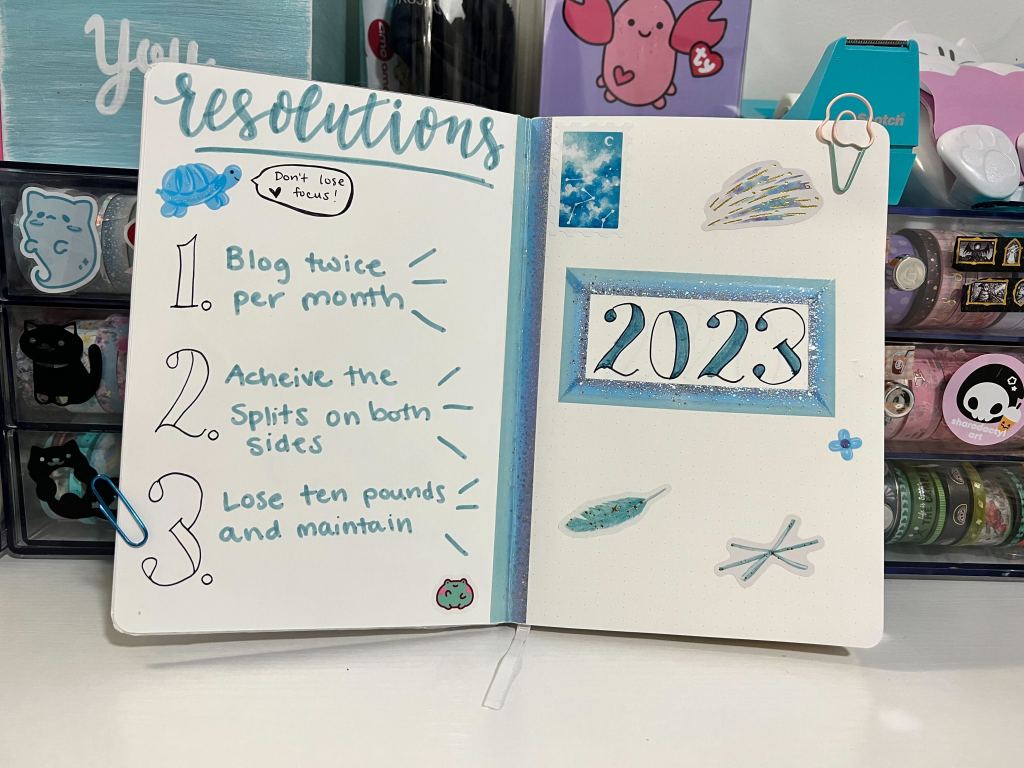 You
resolutions
Don't lose
focus!
1.
Blog twice
per month
2.
Acheive the
Splits on both
sides
3.
Lose ten pounds
and maintain
2023
ty
Scotch
sharodactyl
art